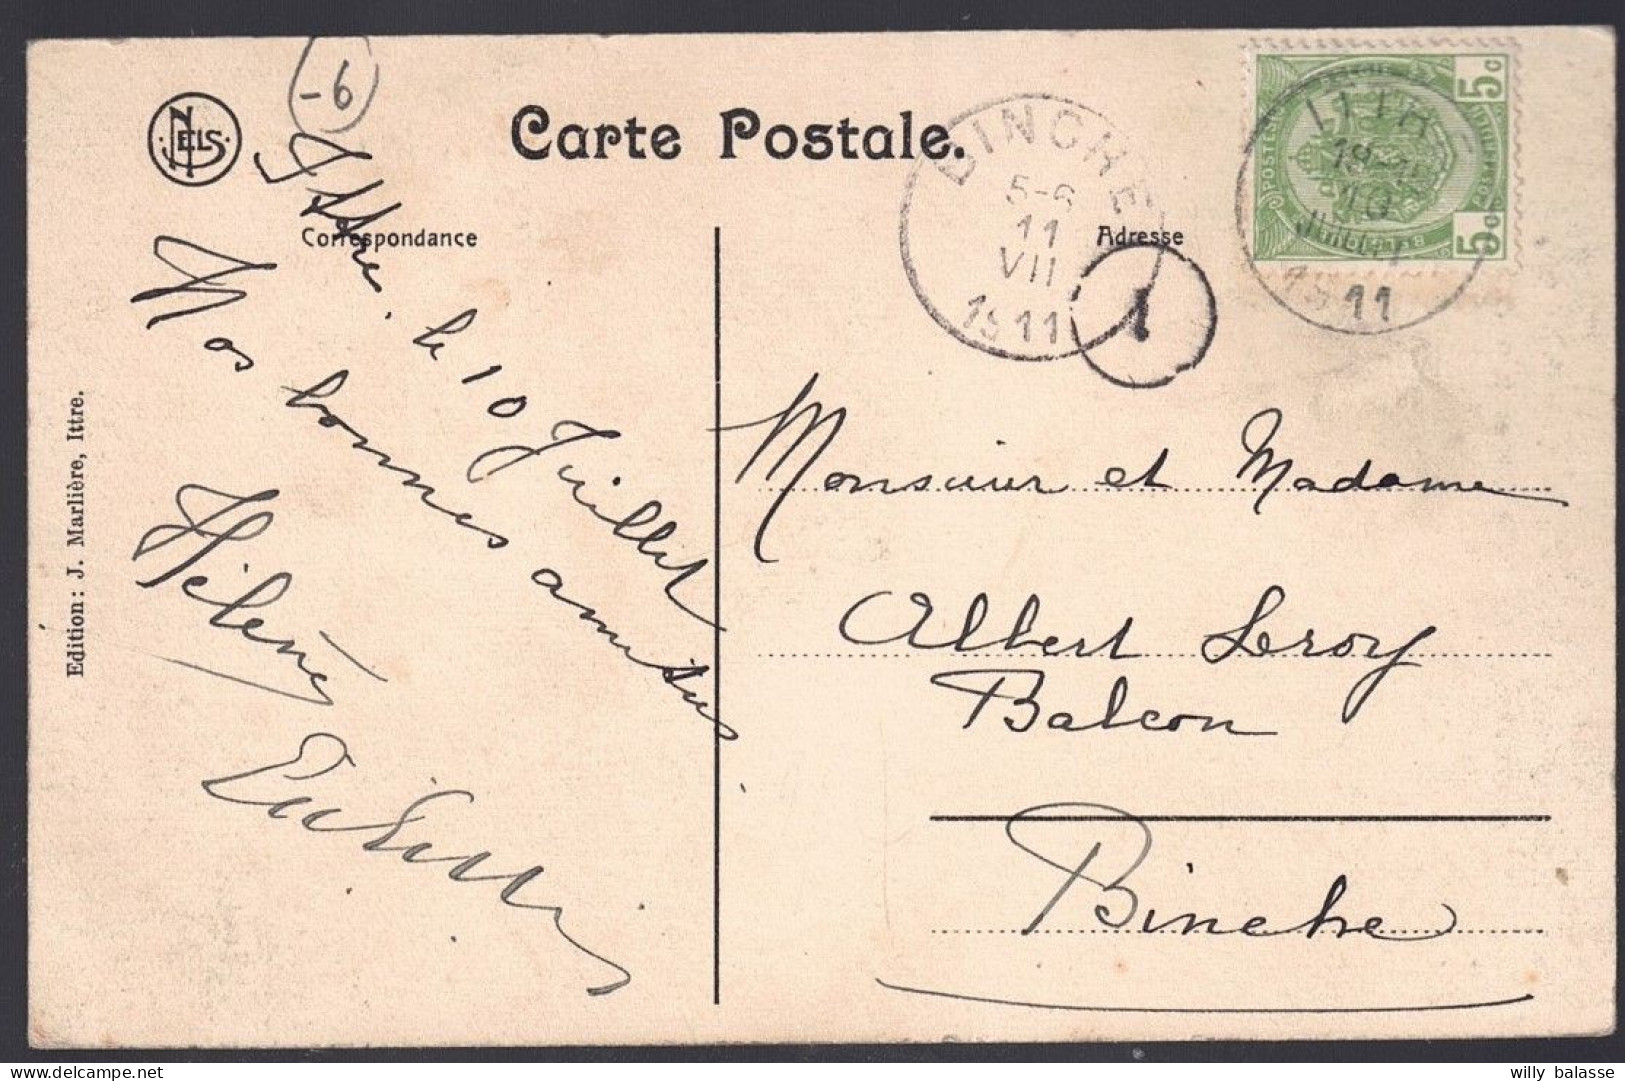 -6
NELS
Carte Postale.
Correspondance
Adresse
Ittre, le 10 Juillet
Nos bonnes amitiés
Hélène
Edition : J. Marlière, Ittre.
BINCHE
5-6
11
VII
1911
1
5c
POSTES
5c
ITTRE
10
JUILLET
1911
Monsieur et Madame
Albert Leroy
Balcon
Binche
willy balasse